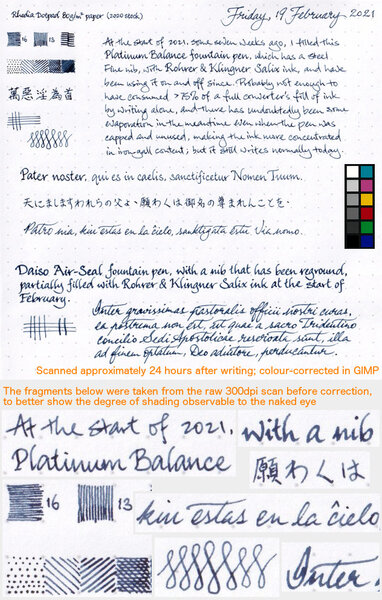 Rhodia Dotpad 80g/m² paper (2020 stock)
Friday, 19 February 2021
16
13
At the start of 2021, some seven weeks ago, I filled this
Platinum Balance fountain pen, which has a Steel
Fine nib, with Rohrer & Klingner Salix ink, and have
been using it on and off since. Probably not enough to
have consumed >75% of a full converter's fill of ink
by writing alone, and there has undoubtedly been some
evaporation in the meantime even when the pen was
capped and unused, making the ink more concentrated
in iron-gall content; but it still writes normally today.
萬惡淫為首
Pater noster, qui es in caelis, sanctificetur Nomen Tuum.
天にましますわれらの父よ、願わくは御名の尊まれんことを。
Patro nia, kiu estas en la ĉielo, sanktigata estu Via nomo.
Daiso Air-Seal fountain pen, with a nib that has been reground,
partially filled with Rohrer & Klingner Salix ink at the start of
February.
Inter gravissimas pastoralis officii nostri curas,
ea postrema non est, ut quae a sacro Tridentino
concilio Sedi Apostolicae reservata sunt, illa
ad finem optatum, Deo adiutore, perducantur.
Scanned approximately 24 hours after writing; colour-corrected in GIMP
The fragments below were taken from the raw 300dpi scan before correction,
to better show the degree of shading observable to the naked eye
At the start of 2021,
Platinum Balance
with a nib
願わくは
16
13
kiu estas en la ĉielo
Inter